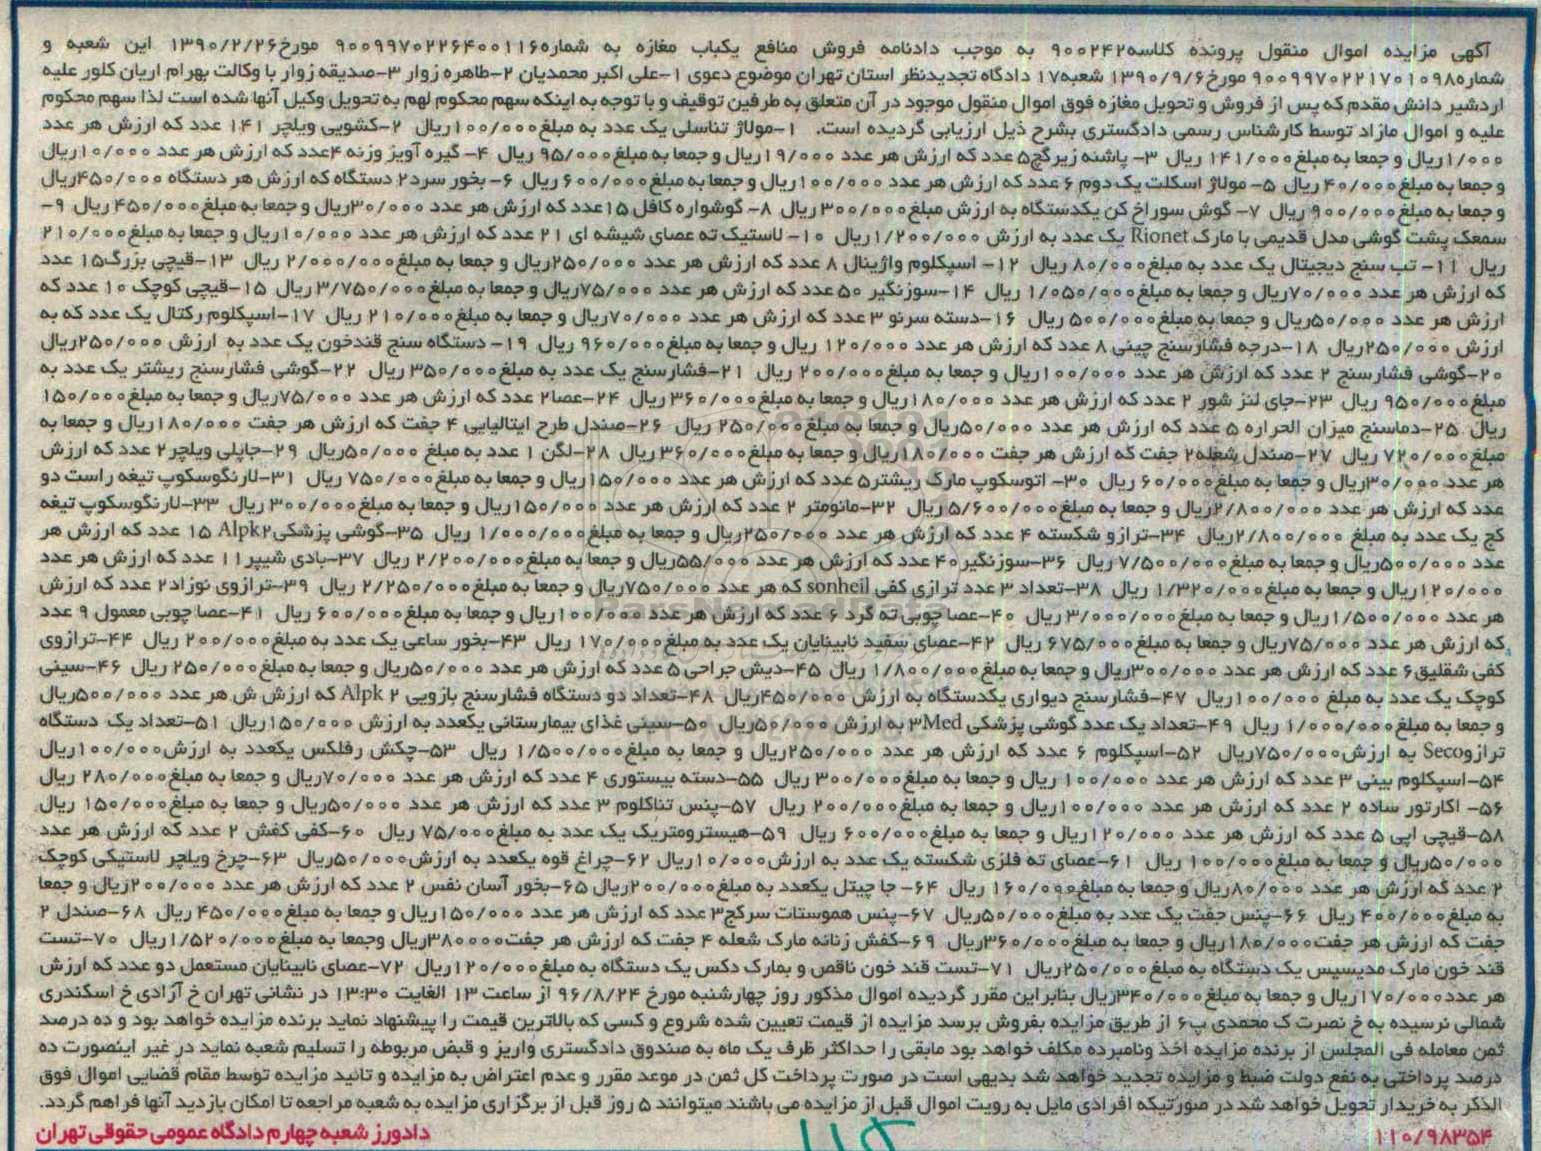 آگهی مزایده اموال منقول پرونده کلاسه۹۰۰۲۴۲ به موجب دادنامه فروش منافع یکباب مغازه به شماره۹۰۰۹۹۷۰۲۲۶۴۰۰۱۱۶ مورخ۱۳۹۰/۲/۲۶ این شعبه و
شماره۹۰۰۹۹۷۰۲۲۱۷۰۱۰۹۸ مورخ۱۳۹۰/۹/۶ شعبه۱۷ دادگاه تجدیدنظر استان تهران موضوع دعوی ۱-علی اکبر محمدیان ۲-طاهره زوار ۳-صدیقه زوار با وکالت بهرام اریان کلور علیه
اردشیر دانش مقدم که پس از فروش و تحویل مغازه فوق اموال منقول موجود در آن متعلق به طرفین توقیف و با توجه به اینکه سهم محکوم لهم به تحویل وکیل آنها شده است لذا سهم محکوم
علیه و اموال مازاد توسط کارشناس رسمی دادگستری بشرح ذیل ارزیابی گردیده است. ۱-مولاژ تناسلی یک عدد به مبلغ۱۰۰/۰۰۰ریال ۲-کشویی ویلچر ۱۴۱ عدد که ارزش هر عدد
۱/۰۰۰ریال و جمعا به مبلغ۱۴۱/۰۰۰ ریال ۳- پاشنه زیرگچ۵ عدد که ارزش هر عدد ۱۹/۰۰۰ریال و جمعا به مبلغ۹۵/۰۰۰ ریال ۴- گیره آویز وزنه ۴عدد که ارزش هر عدد ۱۰/۰۰۰ریال
و جمعا به مبلغ۴۰/۰۰۰ ریال ۵- مولاژ اسکلت یک دوم ۶ عدد که ارزش هر عدد ۱۰۰/۰۰۰ریال و جمعا به مبلغ۶۰۰/۰۰۰ ریال ۶- بخور سرد۲ دستگاه که ارزش هر دستگاه ۴۵۰/۰۰۰ریال
و جمعا به مبلغ۹۰۰/۰۰۰ ریال ۷- گوش سوراخ کن یکدستگاه به ارزش مبلغ۳۰۰/۰۰۰ ریال ۸- گوشواره کافل ۱۵عدد که ارزش هر عدد ۳۰/۰۰۰ریال و جمعا به مبلغ۴۵۰/۰۰۰ ریال ۹-
سمعک پشت گوشی مدل قدیمی با مارک Rionet یک عدد به ارزش ۱/۲۰۰/۰۰۰ریال ۱۰- لاستیک ته عصای شیشه ای ۲۱ عدد که ارزش هر عدد ۱۰/۰۰۰ریال و جمعا به مبلغ۲۱۰/۰۰۰
ریال ۱۱- تب سنج دیجیتال یک عدد به مبلغ۸۰/۰۰۰ ریال ۱۲- اسپکلوم واژینال ۸ عدد که ارزش هر عدد ۲۵۰/۰۰۰ریال و جمعا به مبلغ۲/۰۰۰/۰۰۰ ریال ۱۳-قیچی بزرگ۱۵ عدد
که ارزش هر عدد ۷۰/۰۰۰ریال و جمعا به مبلغ۱/۰۵۰/۰۰۰ ریال ۱۴-سوزنگیر ۵۰ عدد که ارزش هر عدد ۷۵/۰۰۰ریال و جمعا به مبلغ۳/۷۵۰/۰۰۰ ریال ۱۵-قیچی کوچک ۱۰ عدد که
ارزش هر عدد ۵۰/۰۰۰ریال و جمعا به مبلغ۵۰۰/۰۰۰ ریال ۱۶-دسته سرنو ۳ عدد که ارزش هر عدد ۷۰/۰۰۰ریال و جمعا به مبلغ۲۱۰/۰۰۰ ریال ۱۷-اسپکلوم رکتال یک عدد که به
ارزش ۲۵۰/۰۰۰ریال ۱۸-درجه فشارسنج چینی ۸ عدد که ارزش هر عدد ۱۲۰/۰۰۰ ریال و جمعا به مبلغ۹۶۰/۰۰۰ ریال ۱۹- دستگاه سنج قندخون یک عدد به ارزش ۲۵۰/۰۰۰ریال
۲۰-گوشی فشارسنج ۲ عدد که ارزش هر عدد ۱۰۰/۰۰۰ریال و جمعا به مبلغ۲۰۰/۰۰۰ ریال ۲۱-فشارسنج یک عدد به مبلغ۳۵۰/۰۰۰ ریال ۲۲-گوشی فشارسنج ریشتر یک عدد به
مبلغ۹۵۰/۰۰۰ ریال ۲۳-جای لنز شور ۲ عدد که ارزش هر عدد ۱۸۰/۰۰۰ریال و جمعا به مبلغ۳۶۰/۰۰۰ ریال ۲۴-عصا۲ عدد که ارزش هر عدد ۷۵/۰۰۰ریال و جمعا به مبلغ۱۵۰/۰۰۰
ریال ۲۵-دماسنج میزان الحراره ۵ عدد که ارزش هر عدد ۵۰/۰۰۰ریال و جمعا به مبلغ۲۵۰/۰۰۰ ریال ۲۶-صندل طرح ایتالیایی ۴ جفت که ارزش هر جفت ۱۸۰/۰۰۰ریال و جمعا به
مبلغ۷۲۰/۰۰۰ ریال ۲۷-صندل شعله۲ جفت که ارزش هر جفت ۱۸۰/۰۰۰ریال و جمعا به مبلغ۳۶۰/۰۰۰ ریال ۲۸-لگن ۱ عدد به مبلغ ۵۰/۰۰۰ریال ۲۹-جاپلی ویلچر۲ عدد که ارزش
هر عدد ۳۰/۰۰۰ریال و جمعا به مبلغ۶۰/۰۰۰ ریال ۳۰- اتوسکوپ مارک ریشتر۵ عدد که ارزش هر عدد ۱۵۰/۰۰۰ریال و جمعا به مبلغ۷۵۰/۰۰۰ ریال ۳۱-لارنگوسکوپ تیغه راست دو
عدد که ارزش هر عدد ۲/۸۰۰/۰۰۰ریال و جمعا به مبلغ۵/۶۰۰/۰۰۰ ریال ۳۲-مانومتر ۲ عدد که ارزش هر عدد ۱۵۰/۰۰۰ریال و جمعا به مبلغ۳۰۰/۰۰۰ ریال ۳۳-لارنگوسکوپ تیغه
کج یک عدد به مبلغ ۲/۸۰۰/۰۰۰ریال ۳۴-ترازو شکسته ۴ عدد که ارزش هر عدد ۲۵۰/۰۰۰ریال و جمعا به مبلغ۱/۰۰۰/۰۰۰ ریال ۳۵-گوشی پزشکی Alpk۲ ۱۵ عدد که ارزش هر
عدد ۵۰۰/۰۰۰ریال و جمعا به مبلغ۷/۵۰۰/۰۰۰ ریال ۳۶-سوزنگیر۴۰ عدد که ارزش هر عدد ۵۵/۰۰۰ریال و جمعا به مبلغ۲/۲۰۰/۰۰۰ ریال ۳۷-بادی شیپر۱۱ عدد که ارزش هر عدد
۱۲۰/۰۰۰ریال و جمعا به مبلغ۱/۳۲۰/۰۰۰ ریال ۳۸-تعداد ۳ عدد ترازی کفی sonheil که هر عدد ۷۵۰/۰۰۰ریال و جمعا به مبلغ۲/۲۵۰/۰۰۰ ریال ۳۹-ترازوی نوزاد۲ عدد که ارزش
هر عدد ۱/۵۰۰/۰۰۰ریال و جمعا به مبلغ۳/۰۰۰/۰۰۰ ریال ۴۰-عصا چوبی ته گرد ۶ عدد که ارزش هر عدد ۱۰۰/۰۰۰ریال و جمعا به مبلغ۶۰۰/۰۰۰ ریال ۴۱-عصا چوبی معمول ۹ عدد
که ارزش هر عدد ۷۵/۰۰۰ریال و جمعا به مبلغ۶۷۵/۰۰۰ ریال ۴۲-عصای سفید نابینایان یک عدد به مبلغ۱۷۰/۰۰۰ ریال ۴۳-بخور ساعی یک عدد به مبلغ۲۰۰/۰۰۰ ریال ۴۴-ترازوی
کفی شقلیق۶ عدد که ارزش هر عدد ۳۰۰/۰۰۰ریال و جمعا به مبلغ۱/۸۰۰/۰۰۰ ریال ۴۵-دیش جراحی ۵ عدد که ارزش هر عدد ۵۰/۰۰۰ریال و جمعا به مبلغ۲۵۰/۰۰۰ ریال ۴۶-سینی
کوچک یک عدد به مبلغ ۱۰۰/۰۰۰ریال ۴۷-فشارسنج دیواری یکدستگاه به ارزش ۴۵۰/۰۰۰ریال ۴۸-تعداد دو دستگاه فشارسنج بازویی Alpk ۲ که ارزش ش هر عدد ۵۰۰/۰۰۰ریال
و جمعا به مبلغ۱/۰۰۰/۰۰۰ ریال ۴۹-تعداد یک عدد گوشی پزشکی ۳Med به ارزش ۵۰/۰۰۰ریال ۵۰-سینی غذای بیمارستانی یکعدد به ارزش ۱۵۰/۰۰۰ریال ۵۱-تعداد یک دستگاه
ترازوSeco به ارزش۷۵۰/۰۰۰ریال ۵۲-اسپکلوم ۶ عدد که ارزش هر عدد ۲۵۰/۰۰۰ریال و جمعا به مبلغ۱/۵۰۰/۰۰۰ ریال ۵۳-چکش رفلکس یکعدد به ارزش۱۰۰/۰۰۰ریال
۵۴-اسپکلوم بینی ۳ عدد که ارزش هر عدد ۱۰۰/۰۰۰ ریال و جمعا به مبلغ۳۰۰/۰۰۰ ریال ۵۵-دسته بیستوری ۴ عدد که ارزش هر عدد ۷۰/۰۰۰ریال و جمعا به مبلغ۲۸۰/۰۰۰ ریال
۵۶- اکارتور ساده ۲ عدد که ارزش هر عدد ۱۰۰/۰۰۰ریال و جمعا به مبلغ۲۰۰/۰۰۰ ریال ۵۷-پنس تناکلوم ۳ عدد که ارزش هر عدد ۵۰/۰۰۰ریال و جمعا به مبلغ۱۵۰/۰۰۰ ریال
۵۸-قیچی اپی ۵ عدد که ارزش هر عدد ۱۲۰/۰۰۰ریال و جمعا به مبلغ۶۰۰/۰۰۰ ریال ۵۹-هیسترومتریک یک عدد به مبلغ۷۵/۰۰۰ ریال ۶۰-کفی کفش ۲ عدد که ارزش هر عدد
۵۰/۰۰۰ریال و جمعا به مبلغ۱۰۰/۰۰۰ ریال ۶۱-عصای ته فلزی شکسته یک عدد به ارزش۱۰/۰۰۰ریال ۶۲-چراغ قوه یکعدد به ارزش۵۰/۰۰۰ریال ۶۳-چرخ ویلچر لاستیکی کوچک
۲ عدد که ارزش هر عدد ۸۰/۰۰۰ریال و جمعا به مبلغ۱۶۰/۰۰۰ ریال ۶۴- جا چیتل یکعدد به مبلغ۲۰۰/۰۰۰ریال ۶۵-بخور آسان نفس ۲ عدد که ارزش هر عدد ۲۰۰/۰۰۰ریال و جمعا
به مبلغ۴۰۰/۰۰۰ ریال ۶۶-پنس جفت یک عدد به مبلغ۵۰/۰۰۰ریال ۶۷-پنس هموستات سرکج۳ عدد که ارزش هر عدد ۱۵۰/۰۰۰ریال و جمعا به مبلغ۴۵۰/۰۰۰ ریال ۶۸-صندل ۲
جفت که ارزش هر جفت۱۸۰/۰۰۰ریال و جمعا به مبلغ۳۶۰/۰۰۰ریال ۶۹-کفش زنانه مارک شعله ۴ جفت که ارزش هر جفت۳۸۰۰۰۰ریال وجمعا به مبلغ۱/۵۲۰/۰۰۰ریال ۷۰-تست
قند خون مارک مدیسیس یک دستگاه به مبلغ۲۵۰/۰۰۰ریال ۷۱-تست قند خون ناقص و بمارک دکس یک دستگاه به مبلغ۱۲۰/۰۰۰ریال ۷۲-عصای نابینایان مستعمل دو عدد که ارزش
هر عدد۱۷۰/۰۰۰ریال و جمعا به مبلغ۳۴۰/۰۰۰ریال بنابراین مقرر گردیده اموال مذکور روز چهارشنبه مورخ ۹۶/۸/۲۴ از ساعت ۱۳ الغایت ۱۳:۳۰ در نشانی تهران خ آزادی خ اسکندری
شمالی نرسیده به خ نصرت ک محمدی پ۶ از طریق مزایده بفروش برسد مزایده از قیمت تعیین شده شروع و کسی که بالاترین قیمت را پیشنهاد نماید برنده مزایده خواهد بود و ده درصد
ثمن معامله فی المجلس از برنده مزایده اخذ ونامبرده مکلف خواهد بود مابقی را حداکثر ظرف یک ماه به صندوق دادگستری واریز و قبض مربوطه را تسلیم شعبه نماید در غیر اینصورت ده
درصد پرداختی به نفع دولت ضبط و مزایده تجدید خواهد شد بدیهی است در صورت پرداخت کل ثمن در موعد مقرر و عدم اعتراض به مزایده و تائید مزایده توسط مقام قضایی اموال فوق
الذکر به خریدار تحویل خواهد شد در صورتیکه افرادی مایل به رویت اموال قبل از مزایده می باشند میتوانند ۵ روز قبل از برگزاری مزایده به شعبه مراجعه تا امکان بازدید آنها فراهم گردد.
۱۱۰/۹۸۳۵۴ دادورز شعبه چهارم دادگاه عمومی حقوقی تهران